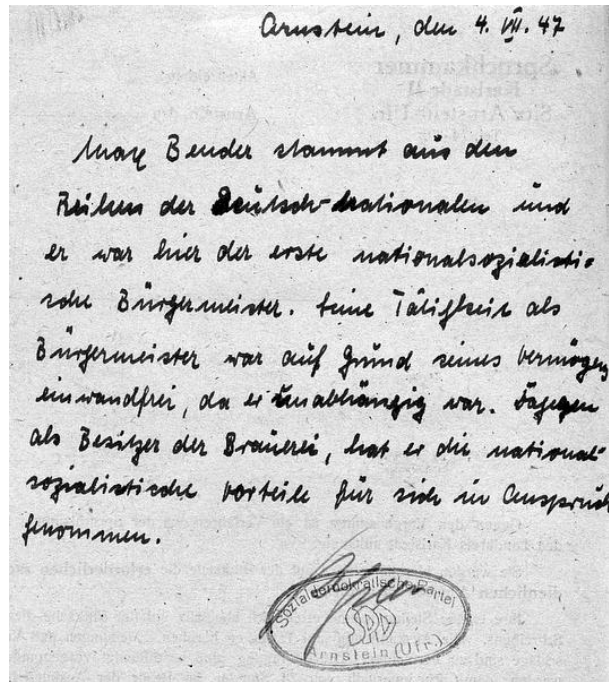 Arnstein, den 4. VII. 47
Max Bender stammt aus den
Reihen der Deutsch-nationalen und
er war hier der erste nationalsozialisti-
sche Bürgermeister. Seine Tätigkeit als
Bürgermeister war auf Grund seines Vermögens
einwandfrei, da er unabhängig war. Dagegen
als Besitzer der Brauerei, hat er die national-
sozialistische Vorteile für sich in Anspruch
genommen.
Sozialdemokratische Partei
SPD
Arnstein (Ufr.)